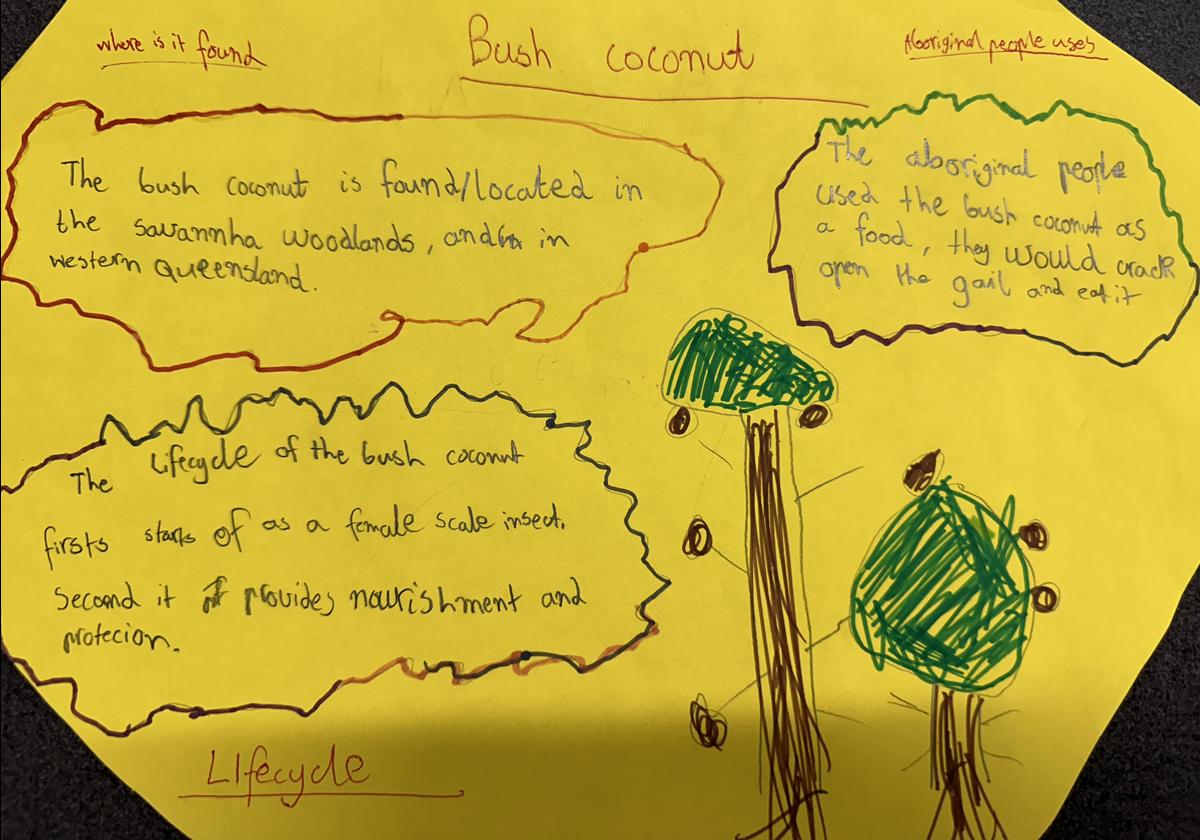 Bush coconut
where is it found
The bush coconut is found/located in
the savannha woodlands, and in
western Queensland.
Aboriginal people uses
The aboriginal people
used the bush coconut as
a food, they would crack
open the gail and eat it
The Lifecycle of the bush coconut
firsts starts of as a female scale insect.
Second it provides nourishment and
protecion.
Lifecycle